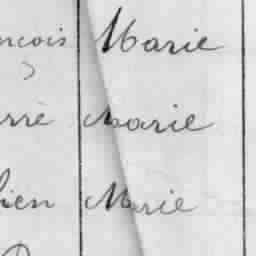 rcois Marie
rrè Marie
lien Marie